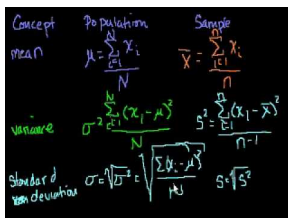 Concept Population Sample
mean μ = \frac{\sum_{i=1}^{N} x_i}{N} \overline{x} = \frac{\sum_{i=1}^{n} x_i}{n}
variance σ^2 = \frac{\sum_{i=1}^{N} (x_i - μ)^2}{N} S^2 = \frac{\sum_{i=1}^{n} (x_i - \overline{x})^2}{n-1}
Standard deviation σ = \sqrt{σ^2} = \sqrt{\frac{\sum (x_i - μ)^2}{N}} S = \sqrt{S^2}